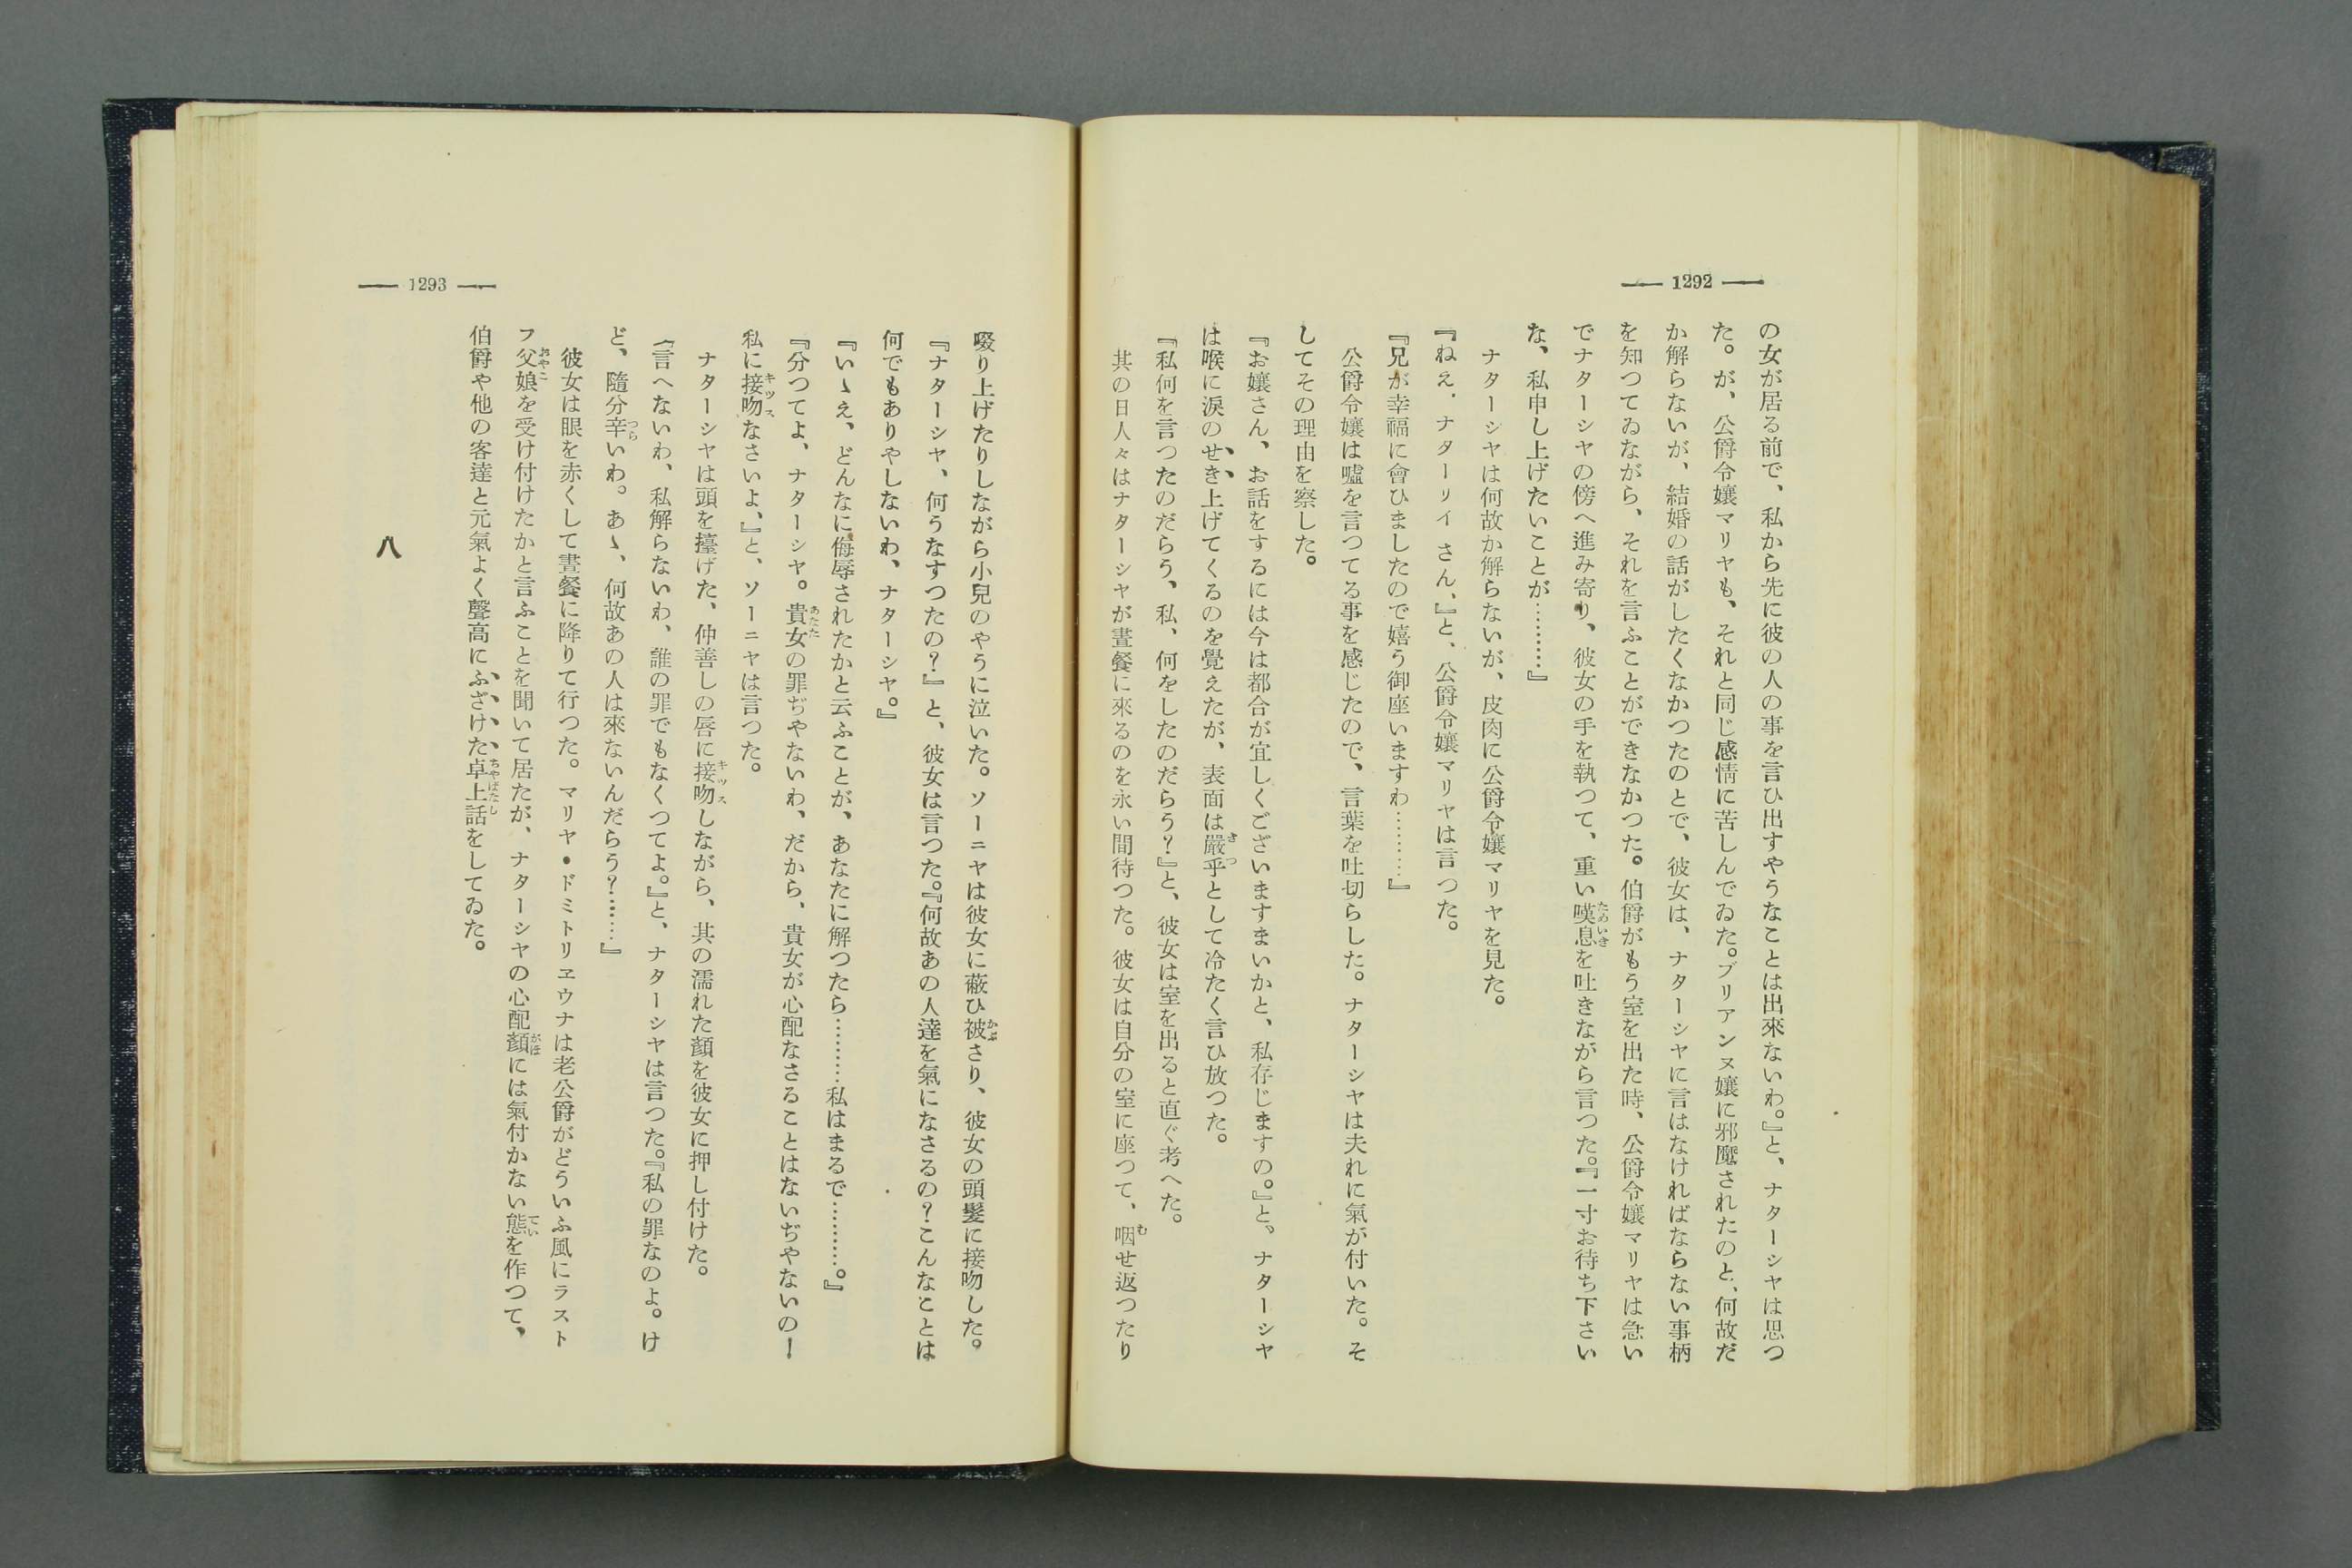 — 1292 —
の女が居る前で、私から先に彼の人の事を言ひ出すやうなことは出來ないわ。』と、ナターシヤは思つ
た。が、公爵令孃マリヤも、それと同じ感情に苦しんでゐた。ブリアンヌ孃に邪魔されたのと、何故だ
か解らないが、結婚の話がしたくなかつたのとで、彼女は、ナターシヤに言はなければならない事柄
を知つてゐながら、それを言ふことができなかつた。伯爵がもう室を出た時、公爵令孃マリヤは急い
でナターシヤの傍へ進み寄り、彼女の手を執つて、重い嘆息を吐きながら言つた。『一寸お待ち下さい
な、私申し上げたいことが…………』
ナターシヤは何故か解らないが、皮肉に公爵令孃マリヤを見た。
『ねえ、ナターリイさん、』と、公爵令孃マリヤは言つた。
『兄が幸福に會ひましたので嬉う御座いますわ………』
公爵令孃は嘘を言つてる事を感じたので、言葉を吐切らした。ナターシヤは夫れに氣が付いた。そ
してその理由を察した。
『お孃さん、お話をするには今は都合が宜しくございますまいかと、私存じますの。』と、ナターシヤ
は喉に涙のせき上げてくるのを覺えたが、表面は嚴乎として冷たく言ひ放つた。
『私何を言つたのだらう、私、何をしたのだらう?』と、彼女は室を出ると直ぐ考へた。
其の日人々はナターシヤが晝餐に來るのを永い間待つた。彼女は自分の室に座つて、咽せ返つたり
— 1293 —
啜り上げたりしながら小兒のやうに泣いた。ソーニヤは彼女に蔽ひ被さり、彼女の頭髮に接吻した。
『ナターシヤ、何うなすつたの?』と、彼女は言つた。『何故あの人達を氣になさるの?こんなことは
何でもありやしないわ、ナターシヤ。』
『いゝえ、どんなに侮辱されたかと云ふことが、あなたに解つたら…………私はまるで…………。』
『分つてよ、ナターシヤ。貴女の罪ぢやないわ、だから、貴女が心配なさることはないぢやないのー
私に接吻なさいよ、』と、ソーニヤは言つた。
ナターシヤは頭を擡げた、仲善しの唇に接吻しながら、其の濡れた顏を彼女に押し付けた。
『言へないわ、私解らないわ、誰の罪でもなくつてよ。』と、ナターシヤは言つた。『私の罪なのよ。け
ど、隨分辛いわ。あゝ、何故あの人は來ないんだらう?………』
彼女は眼を赤くして晝餐に降りて行つた。マリヤ・ドミトリエウナは老公爵がどういふ風にラスト
フ父娘を受け付けたかと言ふことを聞いて居たが、ナターシヤの心配顏には氣付かない態を作つて、
伯爵や他の客達と元氣よく聲高にふざけた卓上話をしてゐた。
八